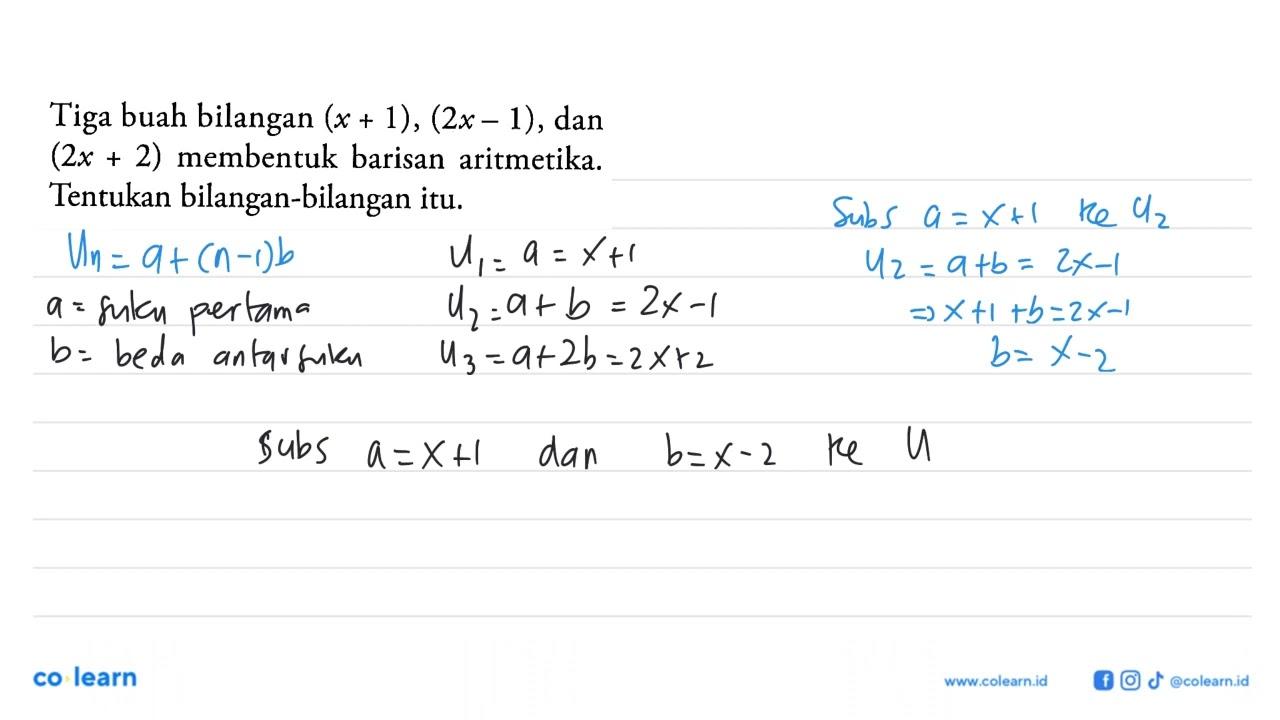 Tiga buah bilangan (x + 1), (2x – 1), dan
(2x + 2) membentuk barisan aritmetika.
Tentukan bilangan-bilangan itu.
Un = a + (n-1)b
a = suku pertama
b = beda antarsuku
U1 = a = x+1
U2 = a + b = 2x-1
U3 = a+2b = 2x+2
Subs a = x+1 ke U2
U2 = a+b = 2x-1
⇒ x+1 +b = 2x-1
b = x-2
Subs a = x+1 dan b = x-2 ke U
co learn
www.colearn.id
@colearn.id